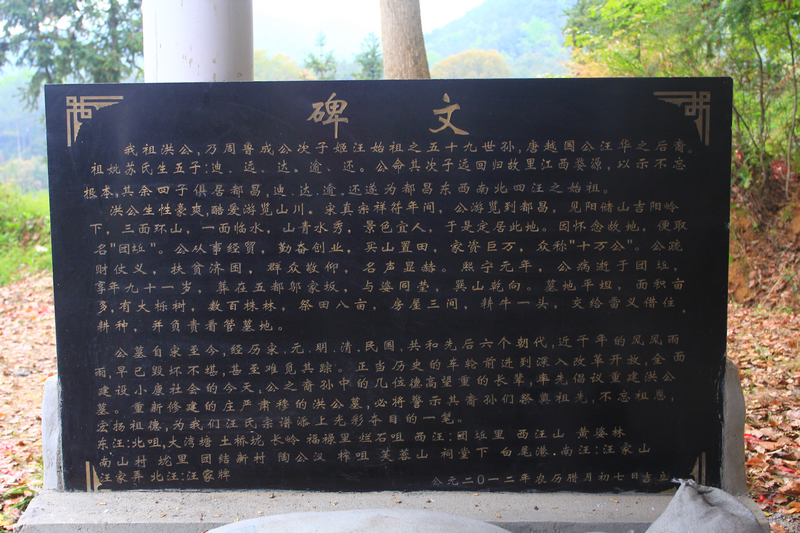 碑文
我祖洪公,乃周鲁成公次子姬汪始祖之五十九世孙,唐越国公汪华之后裔。
祖妣苏氏生五子:迪、远、达、逵、还。公命其次子远回归故里江西婺源,以示不忘
根本,其余四子俱居都昌,迪、达、逵、还遂为都昌东西南北四汪之始祖。
洪公生性豪爽,酷爱游览山川。宋真宗祥符年间,公游览到都昌,见阳储山吉阳岭
下,三面环山,一面临水,山青水秀,景色宜人,于是定居此地。因怀念故地,便取
名"团坵"。公从事经贸,勤奋创业,买山置田,家资巨万,众称"十万公"。公疏
财仗义,扶贫济困,群众敬仰,名声显赫。熙宁元年,公病逝于团坵。
享年九十一岁,葬在五都邬家坂,与婆同茔,巽山乾向。墓地平坦,面积亩
多,有大栎树,数百株林,祭田八亩,房屋三间,耕牛一头,交给雷义借住,
耕种,并负责看管墓地。
公墓自宋至今,经历宋、元、明、清、民国、共和先后六个朝代,近千年的风风雨
雨,早已毁坏不堪,甚至难觅其踪。正当历史的车轮前进到深入改革开放,全面
建设小康社会的今天,公之裔孙中的几位德高望重的长辈,率先倡议重建洪公
墓。重新修建的庄严肃穆的洪公墓,必将警示其裔孙们祭奠祖先,不忘祖恩,
宏扬祖德,为我们汪氏宗谱派上光彩夺目的一笔。
东汪:北咀,大湾塘 土桥垅 长岭 福禄里 烂石咀 西汪:团坵里 西汪山 黄婆林
南山村 垅里 团结新村 陶公汊 榨咀 芙蓉山 祠堂下 白尾港 南汪:汪家山
汪家弄 北汪:汪家牌
公元二0一二年农历腊月初七日吉